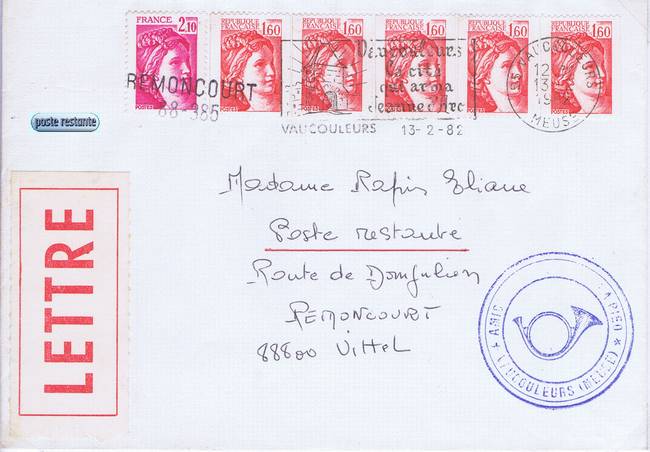 FRANCE 2,10
POSTES
RÉPUBLIQUE FRANÇAISE 1,60
RÉPUBLIQUE FRANÇAISE 1,60
RÉPUBLIQUE FRANÇAISE 1,60
RÉPUBLIQUE FRANÇAISE 1,60
RÉPUBLIQUE FRANÇAISE 1,60
REMONCOURT
88-385
Vaucouleurs
la cité
qui arma
Jeanne d'Arc
VAUCOULEURS 13-2-82
55 VAUCOULEURS
MEUSE
poste restante
LETTRE
Madame Rapin Eliane
Poste restante
Route de Domjulien
REMONCOURT
88800 Vittel
VAUCOULEURS (MEUSE)